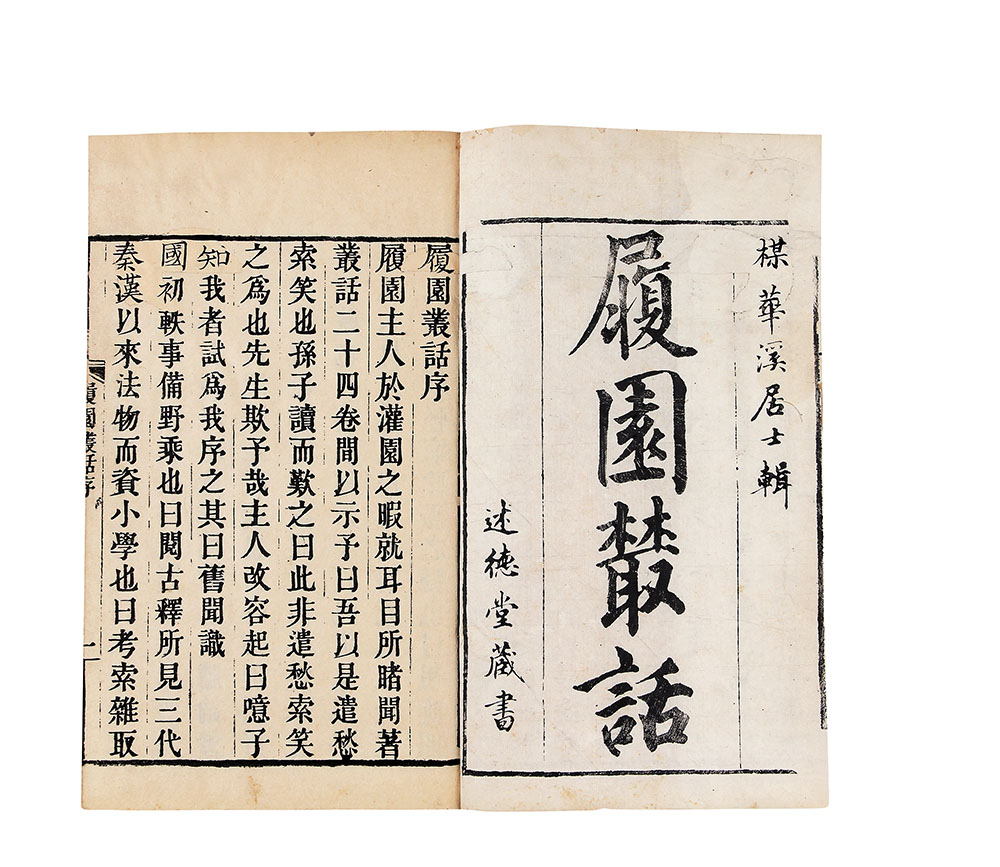 楳華溪居士輯
履園叢話
述德堂藏書
履園叢話序
履園主人於灌園之暇就耳目所睹聞著
叢話二十四卷間以示予曰吾以是遣愁
索笑也孫子讀而歎之曰此非遣愁索笑
之爲也先生欺予哉主人改容起曰噫子
知我者試爲我序之其曰舊聞識
國初軼事備野乘也曰閱古釋所見三代
秦漢以來法物而資小學也曰考索雜取
履園叢話序
一